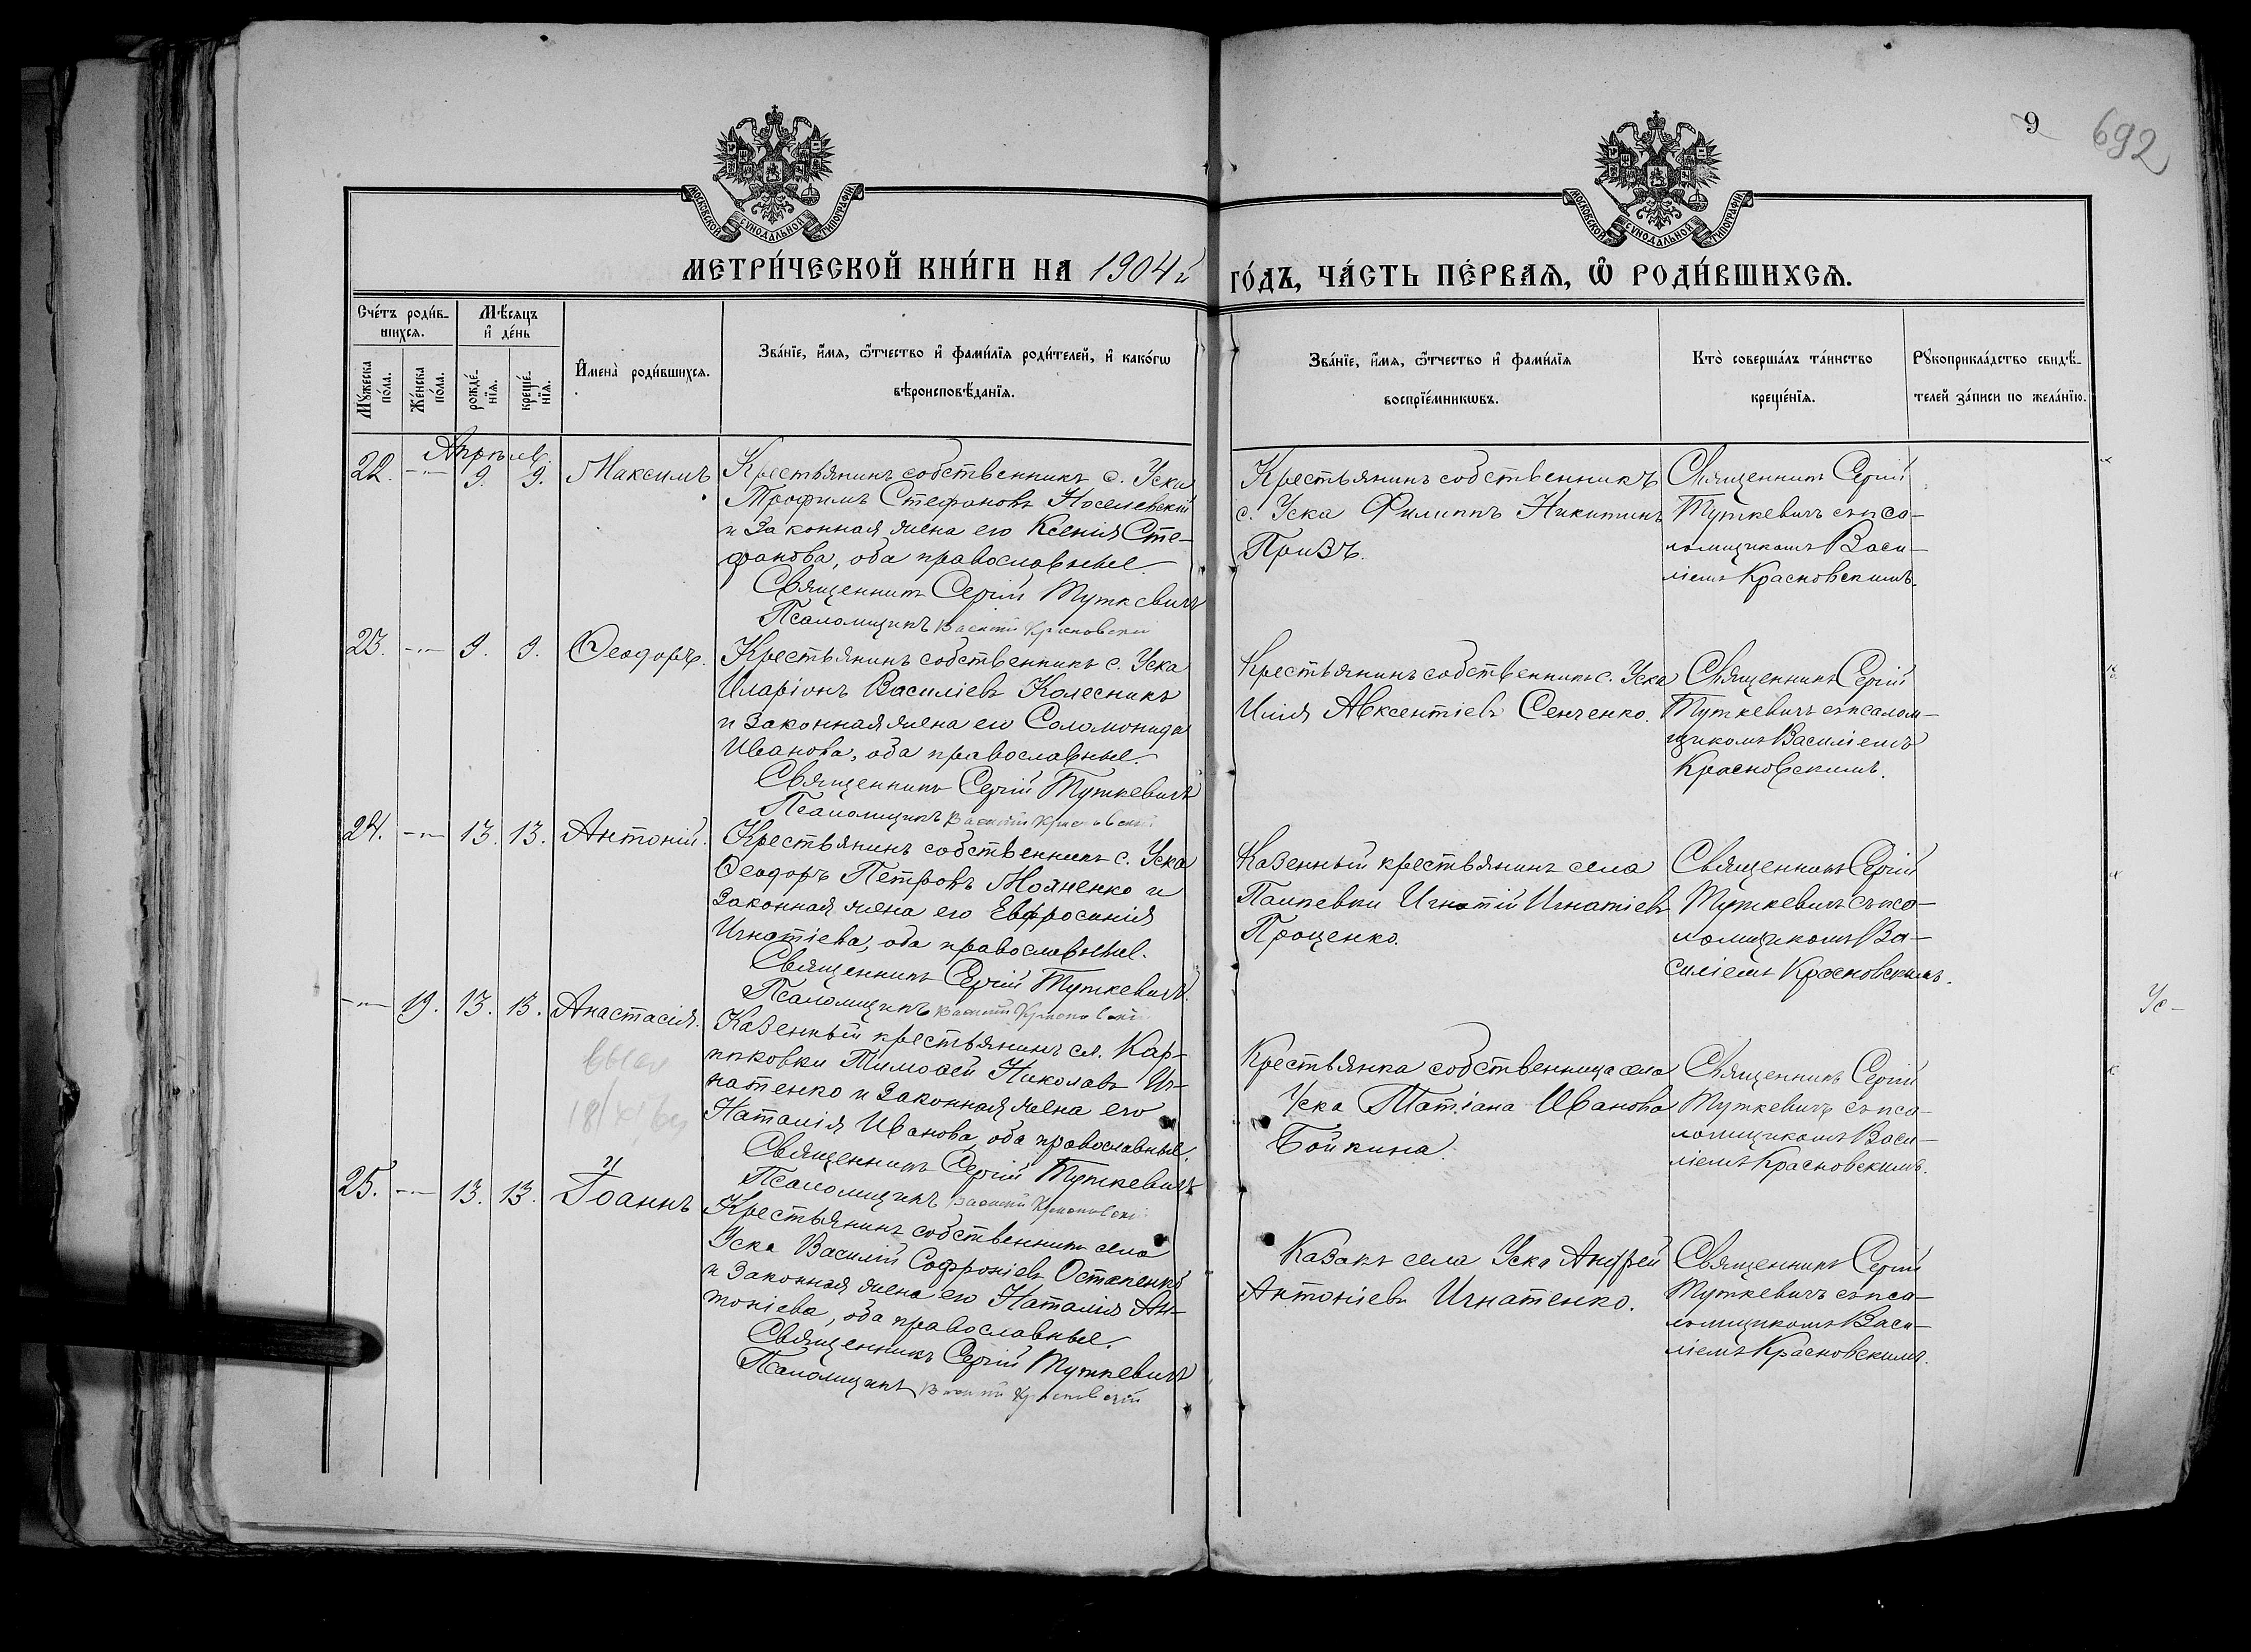 9
692
МОСКОВСКОЙ СѴНОДАЛЬНОЙ ТИПОГРАФІИ
МОСКОВСКОЙ СѴНОДАЛЬНОЙ ТИПОГРАФІИ
МЕТРИ́ЧЕСКОЙ КНИ́ГИ НА 1904й
ГО́ДЪ, ЧА́СТЬ ПЕ́РВАѦ, Ѡ҆ РОДИ́ВШИХСѦ.
Сче́тъ роди́в-
шихсѧ.
Мѣ́сѧцъ
и҆ де́нь
Мꙋ́жеска
по́ла.
Же́нска
по́ла.
рожде́-
нїѧ.
креще́-
нїѧ.
И҆мена̀ роди́вшихсѧ.
Зва́нїе, и҆́мѧ, ѻ҆́тчество и҆ фами́лїѧ роди́телей, и҆ како́гѡ
вѣроисповѣ́данїѧ.
Зва́нїе, и҆́мѧ, ѻ҆́тчество и҆ фами́лїѧ
воспрїе́мникѡвъ.
Кто̀ соверша́лъ та́инство
креще́нїѧ.
Рꙋкоприкла́дство свидѣ́-
телей за́писи по жела́нїю.
Апрѣль
22. -"- 9. 9. Максимъ
Крестьянинъ собственникъ с. Уска
Трофимъ Стефановъ Носелевскій
и законная жена его Ксенія Сте-
фанова, оба православные.
Священникъ Сергій Туткевичъ
Псаломщикъ Василій Красновскій
Крестьянинъ собственникъ
с. Уска Филиппъ Никитинъ
Призъ.
Священникъ Сергій
Туткевичъ съ пса-
ломщикомъ Васи-
ліемъ Красновскимъ.
23. -"- 9. 9. Ѳеодоръ.
Крестьянинъ собственникъ с. Уска
Иларіонъ Василіевъ Колесникъ
и законная жена его Соломонида
Иванова, оба православные.
Священникъ Сергій Туткевичъ
Псаломщикъ Василій Красновскій
Крестьянинъ собственникъ с. Уска
Илія Авксентіевъ Сенченко.
Священникъ Сергій
Туткевичъ съ псалом-
щикомъ Василіемъ
Красновскимъ.
24. -"- 13. 13. Антоній.
Крестьянинъ собственникъ с. Уска
Ѳеодоръ Петровъ Мойненко и
законная жена его Евфросинія
Игнатіева, оба православные.
Священникъ Сергій Туткевичъ.
Псаломщикъ Василій Красновскій
Казенный крестьянинъ села
Паппевки Игнатій Игнатіевъ
Проценко.
Священникъ Сергій
Туткевичъ съ пса-
ломщикомъ Ва-
силіемъ Красновскимъ.
-"- 19. 13. 13. Анастасія.
Казенный крестьянинъ сл. Кар-
пиковки Тимоѳей Николаевъ Иг-
натенко и законная жена его
Наталія Иванова, оба православные.
Священникъ Сергій Туткевичъ
Псаломщикъ Василій Красновскій
Крестьянка собственница села
Уска Татіана Иванова
Бойкина.
Священникъ Сергій
Туткевичъ съ пса-
ломщикомъ Васи-
ліемъ Красновскимъ.
25. -"- 13. 13. Іоаннъ
Крестьянинъ собственникъ села
Уска Василій Софроніевъ Остапенко
и законная жена его Наталія Ан-
тоніева, оба православные.
Священникъ Сергій Туткевичъ
Псаломщикъ Василій Красновскій
Казакъ села Уска Андрей
Антоніевъ Игнатенко.
Священникъ Сергій
Туткевичъ съ пса-
ломщикомъ Васи-
ліемъ Красновскимъ.